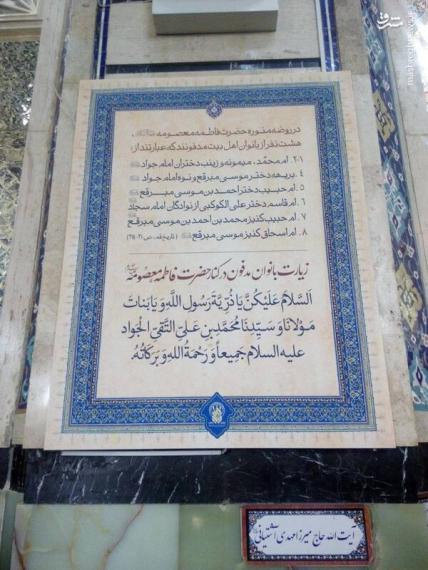 در روضه منوره حضرت فاطمه معصومه
هشت نفر از بانوان اهل بیت مدفونند که عبارتند از:
۱-۲-۳. ام محمّد، میمونه و زینب دختران امام جواد
۴. بریهه دختر موسی مبرقع و نوه امام جواد
۵. ام حبیب دختر احمد بن موسی مبرقع
۶. ام قاسم دختر علی الکوکبی از نوادگان امام سجاد
۷. ام حبیب کنیز محمد بن احمد بن موسی مبرقع
۸. ام اسحاق کنیز موسی مبرقع (تاریخ قم،
زیارت بانوان مدفون در کنار حضرت فاطمه معصومه
اَلسَّلامُ عَلَیْکُنَّ یَا ذُرِّیَّةَ رَسُولِ اللَّهِ وَ یَا بَنَاتَ
مَوْلَانَا وَ سَیِّدِنَا مُحَمَّدِ بْنِ عَلِیٍّ التَّقِیِّ الْجَوَاد
علیه السلام جَمِیعاً وَ رَحْمَةُ اللهِ وَ بَرَکَاتُهُ.
آیت الله حاج میرزا مهدی آشتیانی
مشرق
mashreghnews.ir